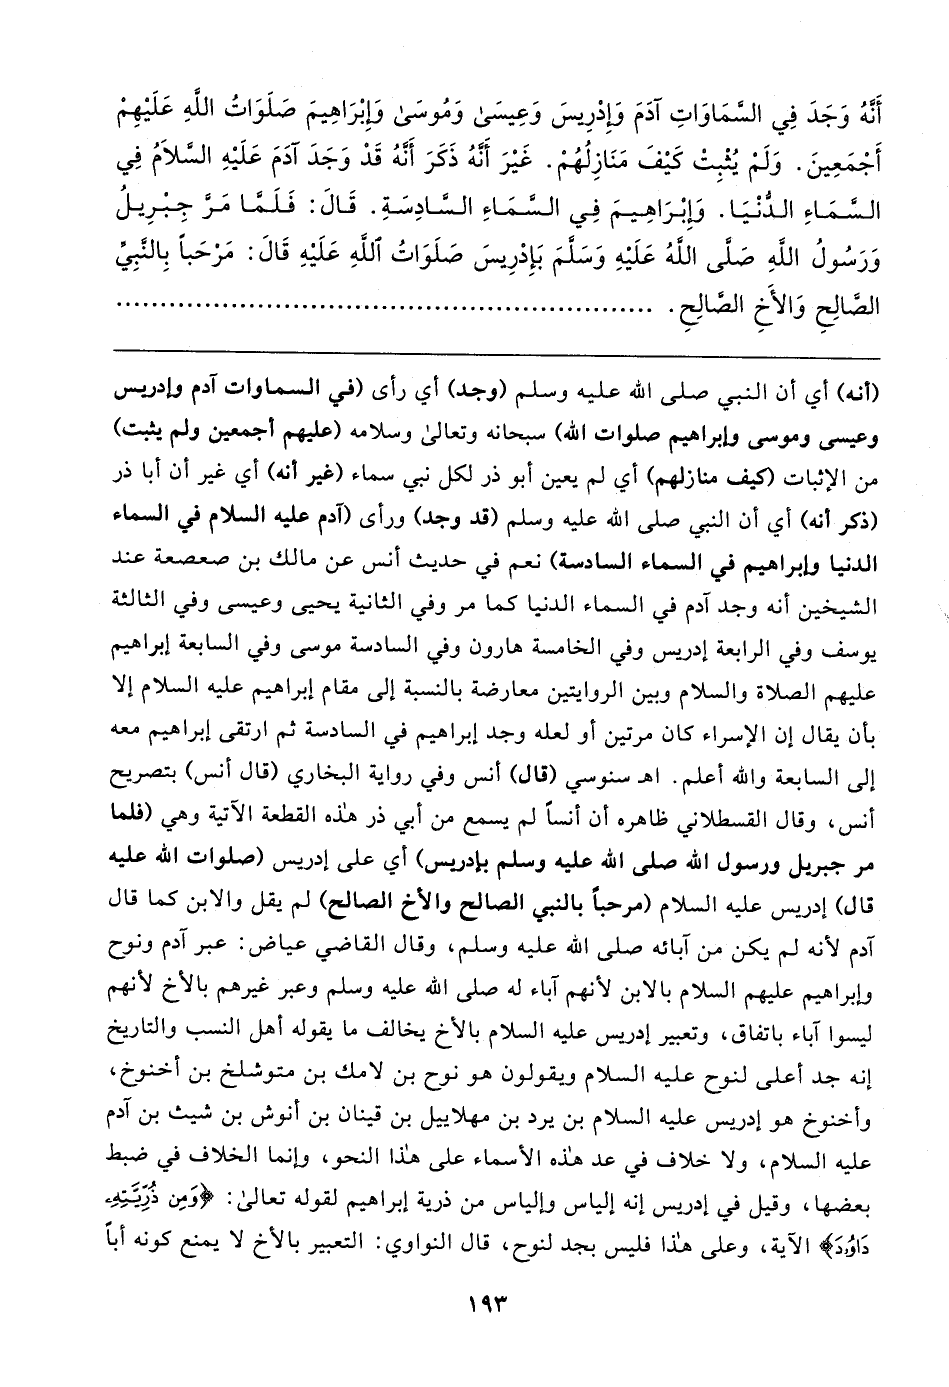 أَنَّهُ وَجَدَ فِي السَّمَاوَاتِ آدَمَ وَإِدْرِيسَ وَعِيسَىٰ وَمُوسَىٰ وَإِبْرَاهِيمَ صَلَوَاتُ اللَّهِ عَلَيْهِمْ
أَجْمَعِينَ. وَلَمْ يُثْبِتْ كَيْفَ مَنَازِلُهُمْ. غَيْرَ أَنَّهُ ذَكَرَ أَنَّهُ قَدْ وَجَدَ آدَمَ عَلَيْهِ السَّلاَمُ فِي
السَّمَاءِ الدُّنْيَا. وَإِبْرَاهِيمَ فِي السَّمَاءِ السَّادِسَةِ. قَالَ: فَلَمَّا مَرَّ جِبْرِيلُ
وَرَسُولُ اللَّهِ صَلَّى اللَّهُ عَلَيْهِ وَسَلَّمَ بِإِدْرِيسَ صَلَوَاتُ اللَّهِ عَلَيْهِ قَالَ: مَرْحَباً بِالنَّبِيِّ
الصَّالِحِ وَالأَخِ الصَّالِحِ. ......................................................
(أنه) أي أن النبي صلى الله عليه وسلم (وجد) أي رأى (في السماوات آدم وإدريس
وعيسى وموسى وإبراهيم صلوات الله) سبحانه وتعالىٰ وسلامه (عليهم أجمعين ولم يثبت)
من الإثبات (كيف منازلهم) أي لم يعين أبو ذر لكل نبي سماء (غير أنه) أي غير أن أبا ذر
(ذكر أنه) أي أن النبي صلى الله عليه وسلم (قد وجد) ورأى (آدم عليه السلام في السماء
الدنيا وإبراهيم في السماء السادسة) نعم في حديث أنس عن مالك بن صعصعة عند
الشيخين أنه وجد آدم في السماء الدنيا كما مر وفي الثانية يحيى وعيسى وفي الثالثة
يوسف وفي الرابعة إدريس وفي الخامسة هارون وفي السادسة موسى وفي السابعة إبراهيم
عليهم الصلاة والسلام وبين الروايتين معارضة بالنسبة إلى مقام إبراهيم عليه السلام إلا
بأن يقال إن الإسراء كان مرتين أو لعله وجد إبراهيم في السادسة ثم ارتقى إبراهيم معه
إلى السابعة والله أعلم. اهـ سنوسي (قال) أنس وفي رواية البخاري (قال أنس) بتصريح
أنس، وقال القسطلاني ظاهره أن أنساً لم يسمع من أبي ذر هٰذه القطعة الآتية وهي (فلما
مر جبريل ورسول الله صلى الله عليه وسلم بإدريس) أي على إدريس (صلوات الله عليه
قال) إدريس عليه السلام (مرحباً بالنبي الصالح والأخ الصالح) لم يقل والابن كما قال
آدم لأنه لم يكن من آبائه صلى الله عليه وسلم، وقال القاضي عياض: عبر آدم ونوح
وإبراهيم عليهم السلام بالابن لأنهم آباء له صلى الله عليه وسلم وعبر غيرهم بالأخ لأنهم
ليسوا آباء باتفاق، وتعبير إدريس عليه السلام بالأخ يخالف ما يقوله أهل النسب والتاريخ
إنه جد أعلى لنوح عليه السلام ويقولون هو نوح بن لامك بن متوشلخ بن أخنوخ،
وأخنوخ هو إدريس عليه السلام بن يرد بن مهلاييل بن قينان بن أنوش بن شيث بن آدم
عليه السلام، ولا خلاف في عد هٰذه الأسماء على هٰذا النحو، وإنما الخلاف في ضبط
بعضها، وقيل في إدريس إنه إلياس وإلياس من ذرية إبراهيم لقوله تعالىٰ: ﴿وَمِن ذُرِّيَّتِهِۦ
دَاوُۥدَ﴾ الآية، وعلى هٰذا فليس بجد لنوح، قال النواوي: التعبير بالأخ لا يمنع كونه أباً
١٩٣